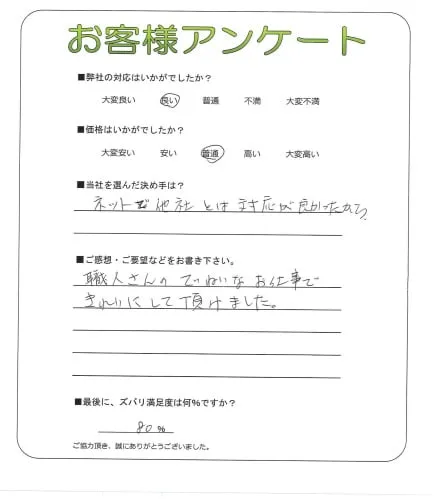 お客様アンケート
■弊社の対応はいかがでしたか?
大変良い 良い 普通 不満 大変不満
■価格はいかがでしたか?
大変安い 安い 普通 高い 大変高い
■当社を選んだ決め手は?
ネットで他社とは対応が良かったから
■ご感想・ご要望などをお書き下さい。
職人さんのていねいなお仕事で
きれいにして頂けました。
■最後に、ズバリ満足度は何%ですか?
80 %
ご協力頂き、誠にありがとうございました。